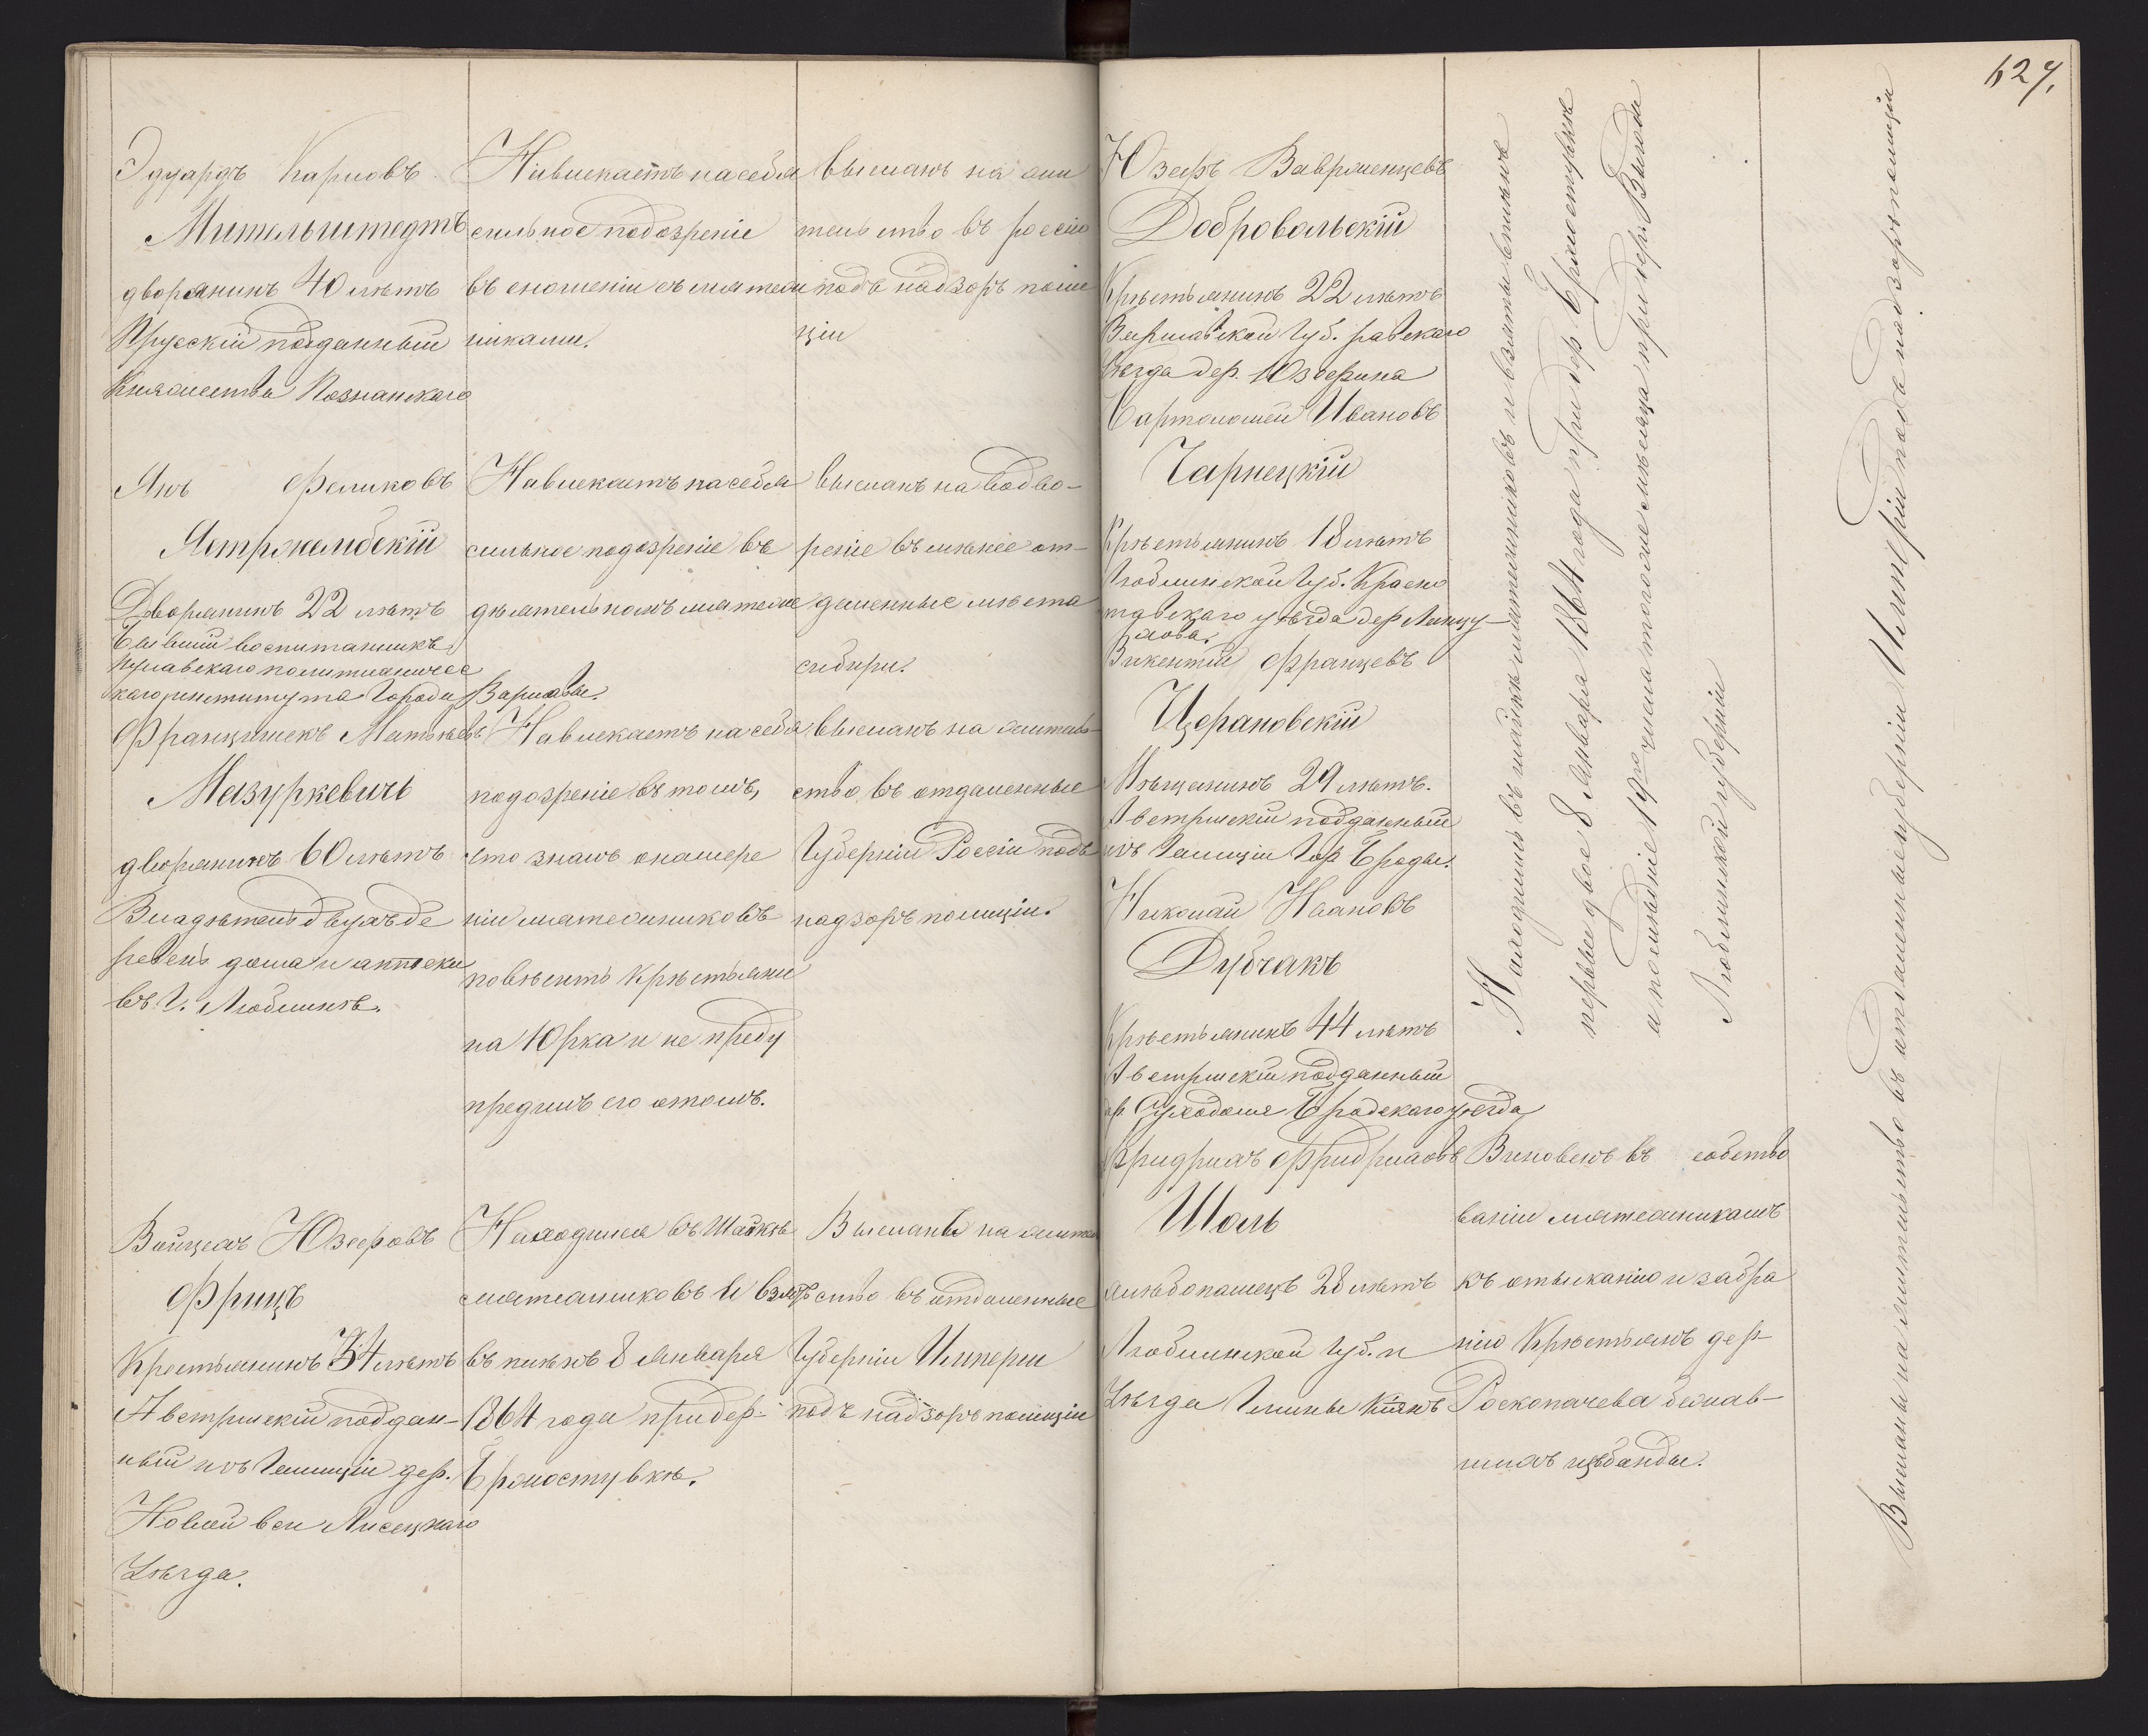 627.
Эдуардъ Карловъ
Мительштедтъ
дворянинъ 40 лѣтъ
Прусскій подданный
Княжества Познанскаго
Навлекаетъ на себя
сильное подозрѣніе
въ сношеніи съ мятеж
никами.
высланъ на жи
тельство въ россію
подъ надзоръ поли
ціи
Янъ Феликовъ
Ястржембскій
Дворянинъ 22 лѣтъ
бывшій воспитанникъ
Пулавскаго политехничес
каго института Города Варшавы.
Навлекаетъ на себя
сильное подозрѣніе въ
дѣятельномъ мятеже
высланъ на водво-
реніе въ менѣе от-
даленные мѣста
сибири.
Францишекъ Матвѣевъ
Мазуркевичъ
дворянинъ 60 лѣтъ
Владѣтель двухъ де
ревень дома и аптеки
въ Г. Люблинѣ.
Навлекаетъ на себя
подозрѣніе въ томъ,
что зналъ о намѣре
ніи мятежниковъ
повѣсить Крѣстьяни
на Юрка и не преду
предилъ его отомъ.
высланъ на житель-
ство въ отдаленные
Губерніи Россіи подъ
надзоръ полиціи.
Войцехъ Юзефовъ
Фрицъ
Крестьянинъ 34 лѣтъ
Австрійскій поддан-
ный изъ Галиціи дер.
Новой вси Лисецкаго
Уѣзда.
Находился въ Шайкѣ
мятежниковъ и взятъ
въ плѣнъ 8 Января
1864 года при дер.
Бржостувкѣ.
Высланъ на житель
ство въ отдаленные
Губерніи Имперіи
подъ надзоръ полиціи
Юзефъ Вавржинцевъ
Добровольскій
Крѣстьянинъ 22 лѣтъ
Варшавской Губ. равскаго
Уѣзда дер. Юзефина
Бартоломей Ивановъ
Чарнецкій
Крѣстьянинъ 18 лѣтъ
Люблинской Губ. Красно
тавскаго уѣзда дер
Викентій Францевъ
Церановскій
Мѣщанинъ 29 лѣтъ.
Австрійскій подданный
изъ Галиціи Гор Броды.
Николай Ивановъ
Дубчакъ
Крѣстьянинъ 44 лѣтъ
Австрійскій подданный
др. Суходолы Бродскаго уѣзда
Находились въ шайкѣ мятежниковъ и взяты въ плѣнъ
первые двое 8 Января 1864 года при дер Бржостувкѣ
а послѣдніе 19го числа того же мѣсяца при дер. Выгода
Люблинской губерніи
Высланы на жительство въ отдаленные губерніи Имперіи подъ надзоръ полиціи
Фридрихъ Фридриховъ
Шоль
хлѣбопашецъ 28 лѣтъ
Люблинской Губ. и
Уѣзда Гмины
Виновенъ въ собство
ваніи мятежникамъ
къ отысканію и забра
нію Крѣстьянъ дер
Роскопачева бежав-
шихъ изъ банды.